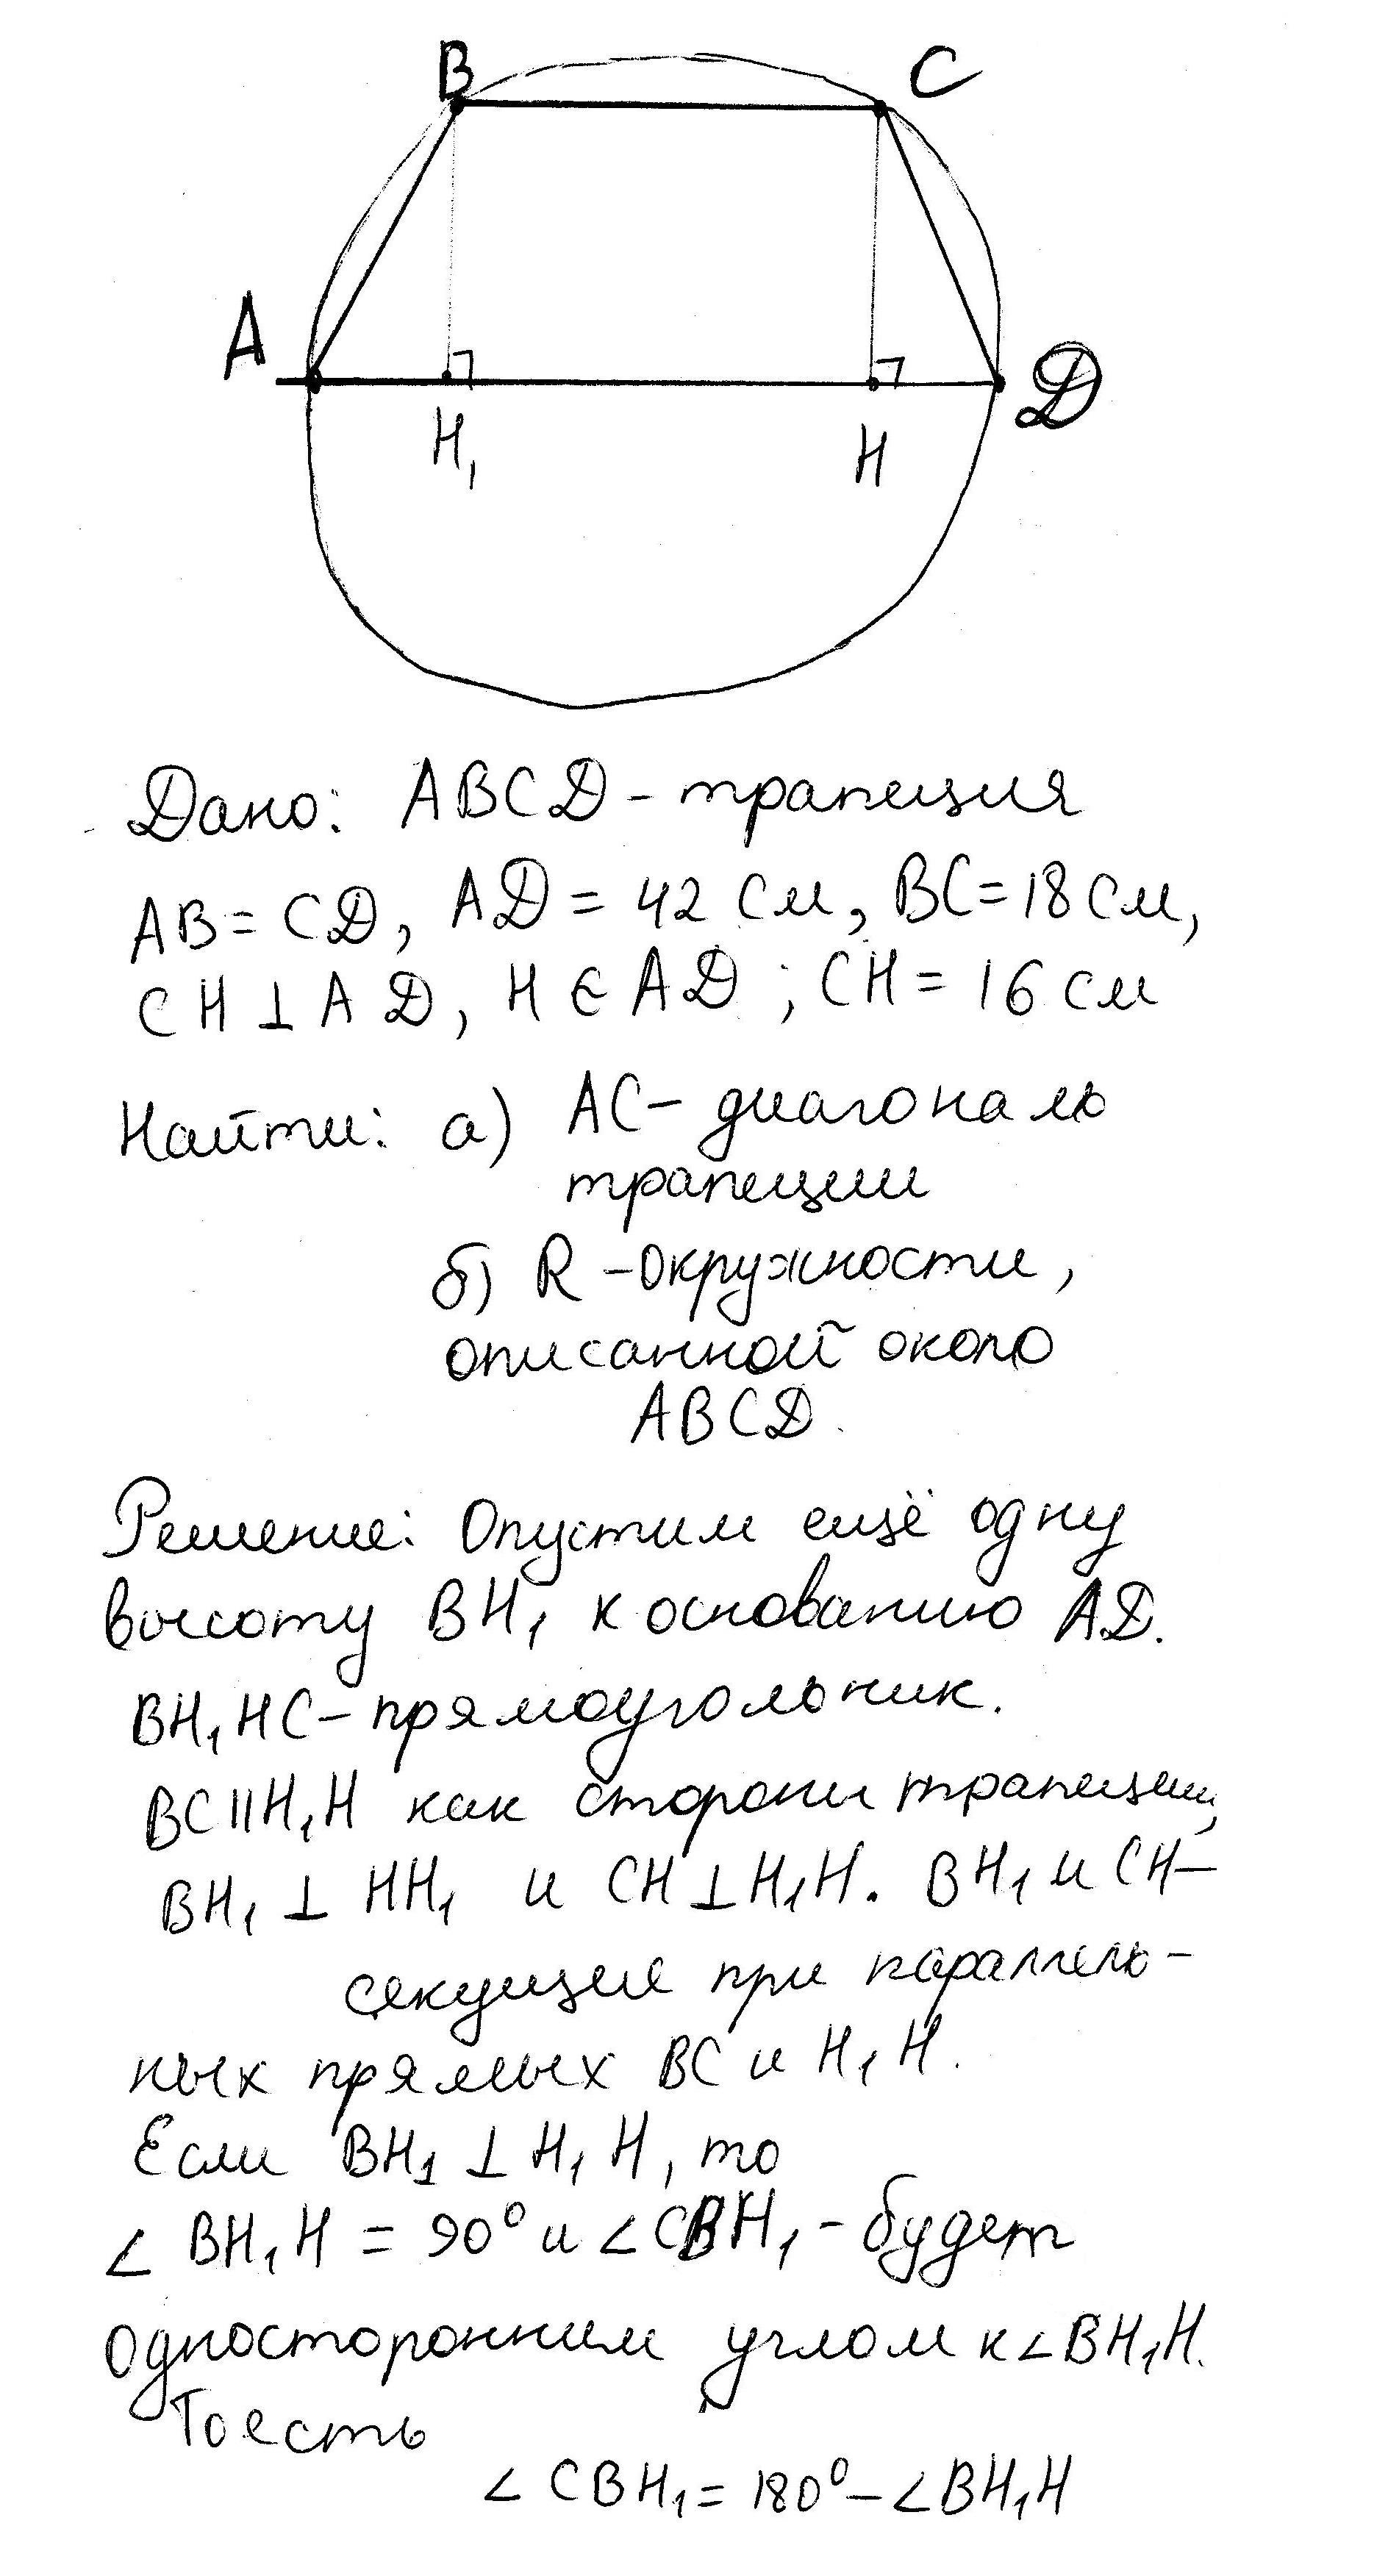 B C
A D
H₁ H
Дано: ABCD - трапеция
AB = CD, AD = 42 см, BC = 18 см,
CH ⊥ AD, H ∈ AD ; CH = 16 см
Найти: а) AC - диагональ
трапеции
б) R - окружности,
описанной около
ABCD.
Решение: Опустим ещё одну
высоту BH₁ к основанию AD.
BH₁HC - прямоугольник.
BC || H₁H как стороны трапеции,
BH₁ ⊥ HH₁ и CH ⊥ H₁H. BH₁ и CH -
секущие при параллель-
ных прямых BC и H₁H.
Если BH₁ ⊥ H₁H, то
∠ BH₁H = 90° и ∠CBH₁ - будет
односторонним углом к ∠BH₁H.
Тоесть
∠ CBH₁ = 180° - ∠BH₁H